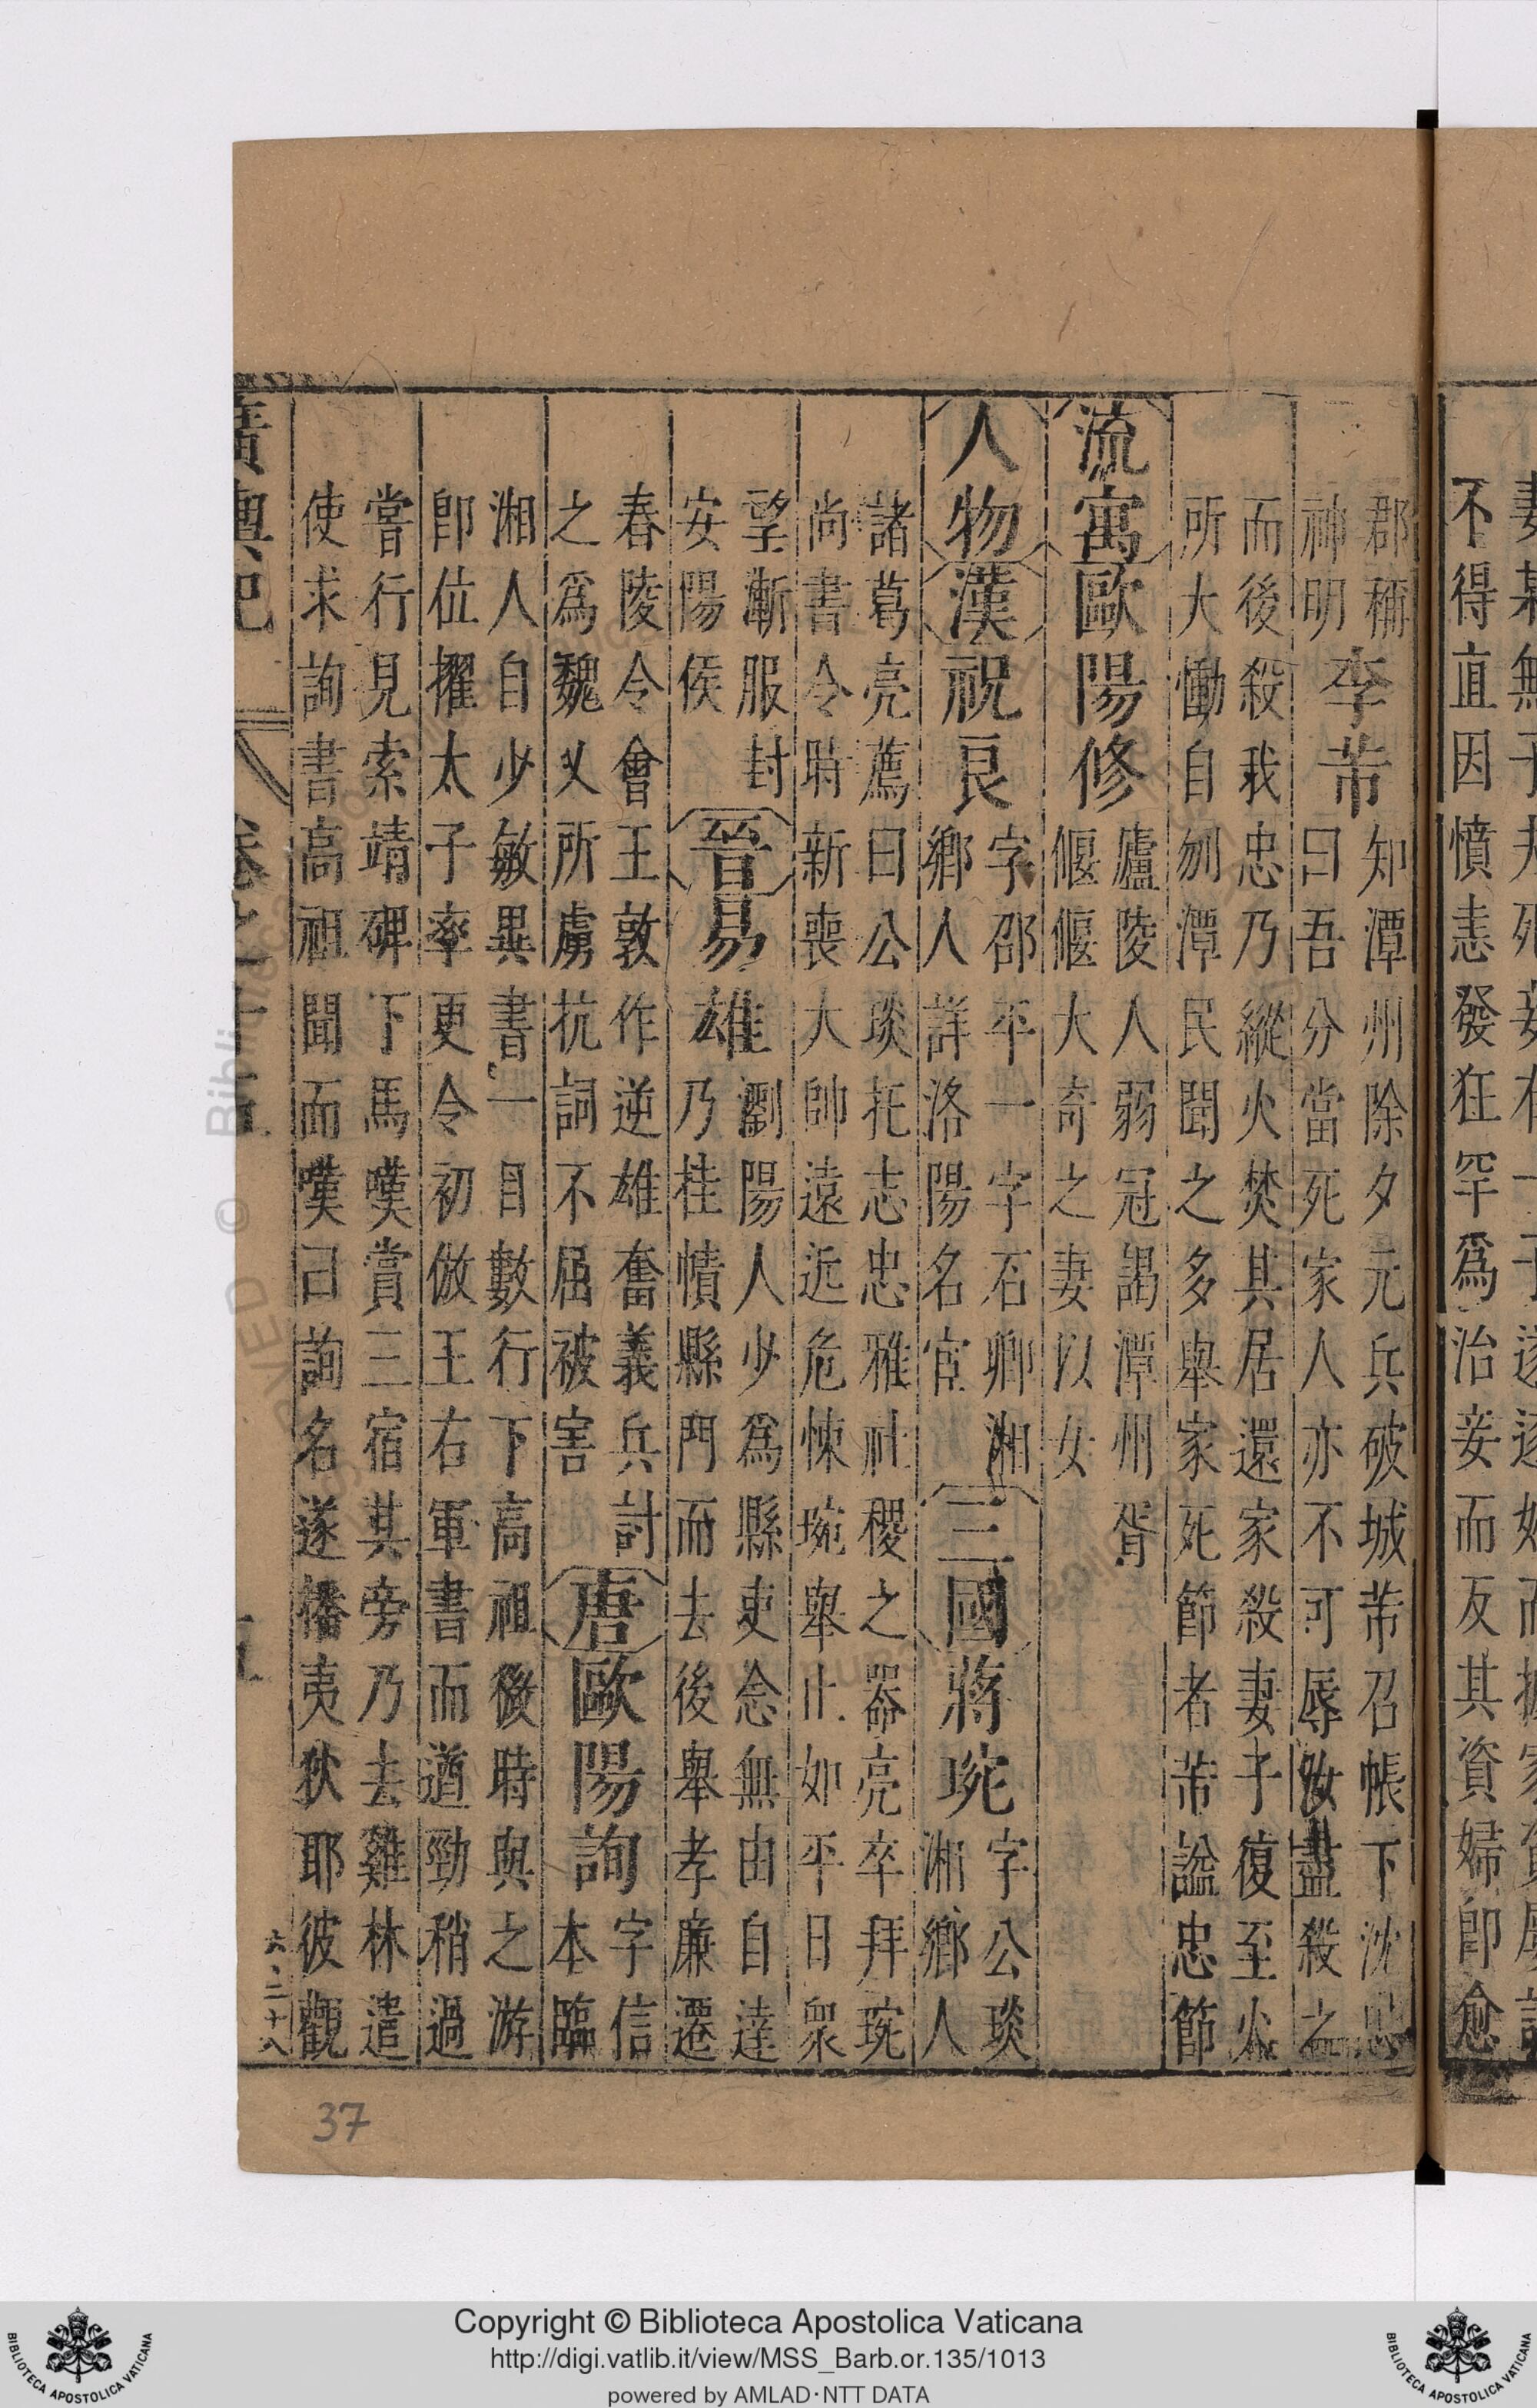 不得直因憤恚發狂罕爲治妾而反其資婦卽愈
郡稱
神明
李芾
知潭州除夕元兵破城芾召帳下沈忠
曰吾分當死家人亦不可辱汝盡殺之
而後殺我忠乃縱火焚其居還家殺妻子復至火
所大慟自刎潭民聞之多舉家死節者芾諡忠節
流寓歐陽修
廬陵人弱冠謁潭州胥
偃偃大奇之妻以女
人物漢祝良
字邵平一字石卿湘
鄉人詳洛陽名宦
三國蔣琬
字公琰
湘鄉人
諸葛亮薦曰公琰托志忠雅社稷之器亮卒拜琬
尚書令時新喪大帥遠近危悚琬舉止如平日衆
望漸服封
安陽侯
晉易雄
瀏陽人少爲縣吏念無由自達
乃挂幘縣門而去後舉孝廉遷
春陵令會王敦作逆雄奮義兵討
之爲魏乂所虜抗詞不屈被害
唐歐陽詢
字信
本臨
湘人自少敏異書一目數行下高祖微時與之游
卽位擢太子率更令初倣王右軍書而遒勁稍過
嘗行見索靖碑下馬嘆賞三宿其旁乃去雞林遣
使求詢書高祖聞而嘆曰詢名遂播夷狄耶彼觀
六、二十八
37
Copyright © Biblioteca Apostolica Vaticana
http://digi.vatlib.it/view/MSS_Barb.or.135/1013
powered by AMLAD·NTT DATA
BIBLIOTECA APOSTOLICA VATICANA
BIBLIOTECA APOSTOLICA VATICANA